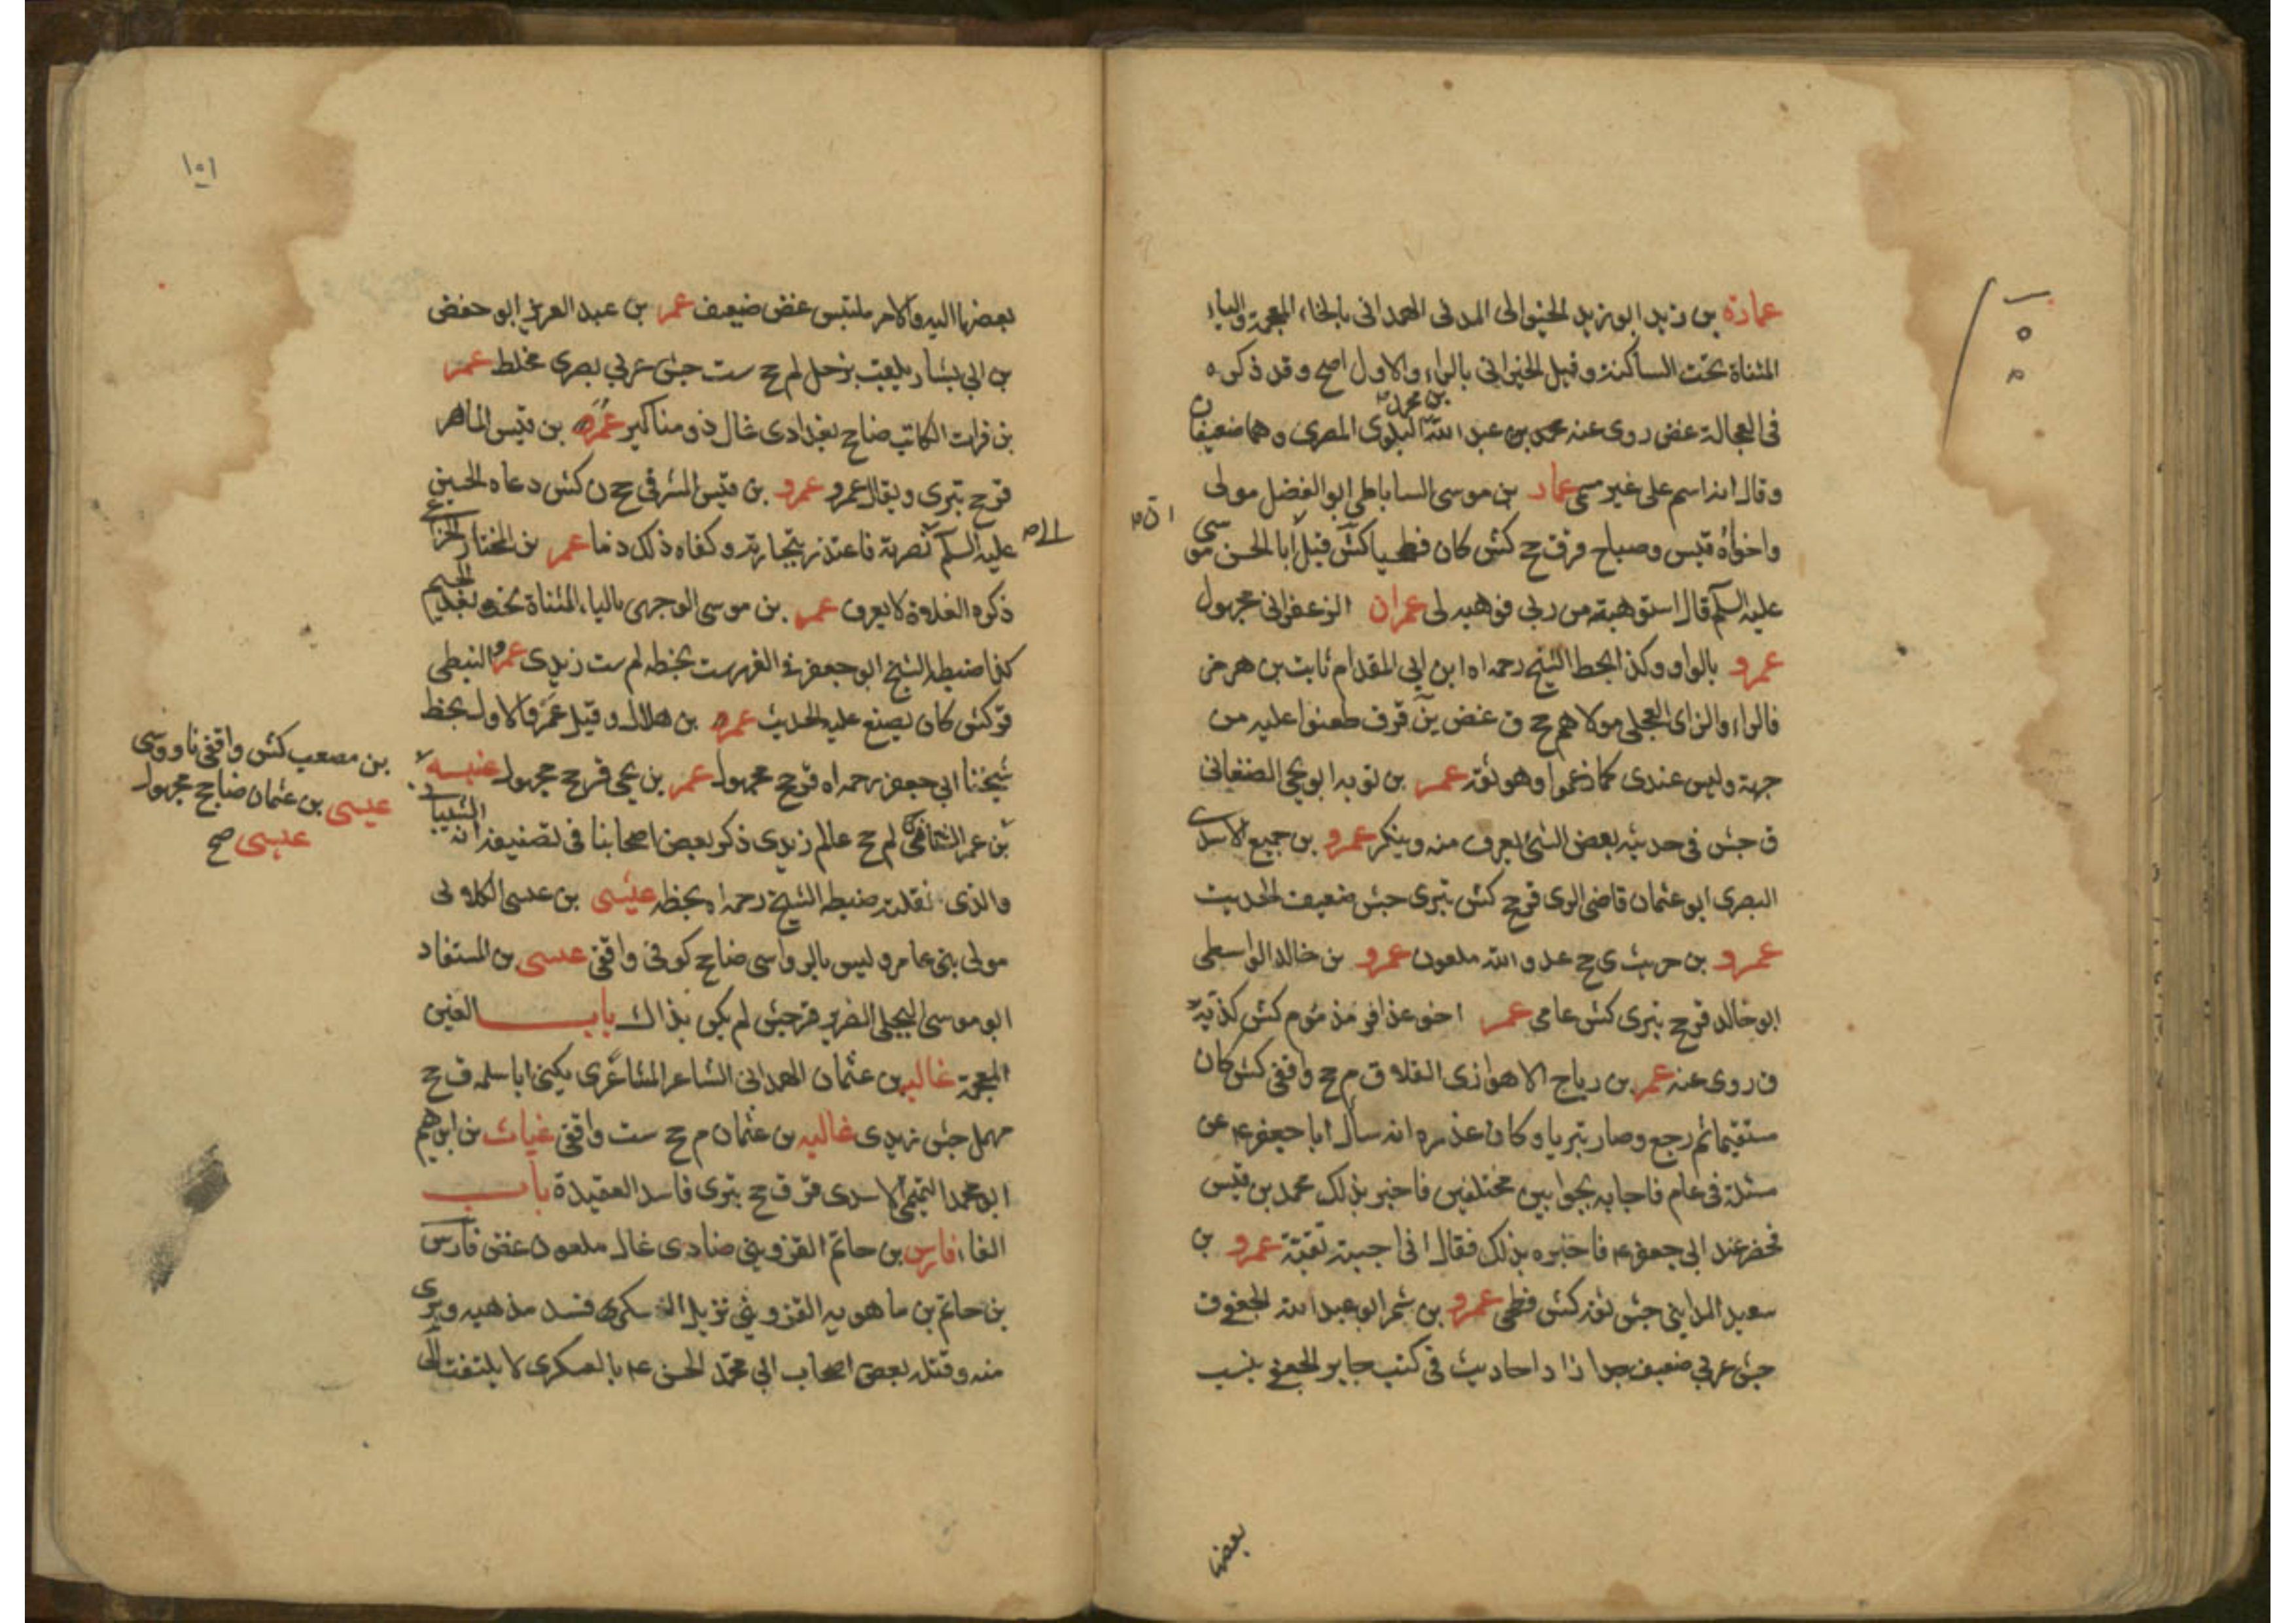 عمارة بن زيد ابو زيد الخيواني المدني الهمداني بالخاء المعجمة والياء
المثناة تحت الساكنة وقيل الخيراني بالراء والاول اصح وقد ذكره
في العجالة غض روى عنه محمد بن عبد الله بن محمد البلوى المصرى وهما ضعيفان
وقال انه اسم على غير مسمى عمار بن موسى الساباطي ابو الفضل مولى
واخواه قيس وصباح قر ق ح كش كان فطحيا كش قيل ابا الحسن موسى
عليه السلم قال استوهبته من ربى فوهبه لى عمران الزعفرانى مجهول
عمرو بالواو وكذا بخط الشيخ رحمه اه ابن ابي المقدام ثابت بن هرمز
فالراء والزاى العجلى مولاهم ح ق غض ين قر ق طعنوا عليه من
جهة وليس عندى كما زعموا وهو ثقة عمر بن توبه ابو يحيى الصنعانى
ق جش فى حديثه بعض الشئ يعرف منه وينكر عمرو بن جميع الاسدى
البصرى ابو عثمان قاضى الرى قر ح كش بترى جش ضعيف الحديث
عمرو بن حريث ى ح عدو الله ملعون عمرو بن خالد الواسطى
ابو خالد قر ح بترى كش عامى عمر اخو عذافر مذموم كش كذبه
ق روى عنه عمر بن رياح الاهوازى القلا ق م ح واقفى كش كان
مستقيما ثم رجع وصار بتريا وكان عذره انه سال ابا جعفر ع عن
مسئلة فى عام فاجابه بجوابين مختلفين فاخبر بذلك محمد بن قيس
فحضر عند ابى جعفر ع فاخبره بذلك فقال انى اجبته تقية عمرو بن
سعيد المدايني جش ثقة كش فطحى عمرو بن شمر ابو عبد الله الجعفى ق
جش عربي ضعيف جدا زاد احاديث فى كتب جابر الجعفى ينسب
بعضها
١٥١
بعضها اليه والامر ملتبس غض ضعيف عمر بن عبد العزيز ابو حفص
بن ابي بشار يلقب بزحل لم ح ست جش عربي بصرى مخلط عمر
بن فرات الكاتب ضا ح بغدادى غال ذو مناكير عمرو بن قيس الماصر
قر ح بترى ويقال عمرو عمرو بن قيس المشرقى ح ن كش دعاه الحسين
عليه السلم الى نصرته فاعتذر بتجارته وكفاه ذلك ذما عمر بن المختار الخزاعى
ذكره الغلاة لا يعرف عمر بن موسى الوجهى بالياء المثناة تحت بعد الجيم
كذا ضبطه الشيخ ابو جعفر فى الفهرست بخطه لم ست زيدى عمرو النبطى
ق كش كان يصنع عليه الحديث عمرو بن هلال وقيل عمر والاول بخط
شيخنا ابي جعفر رحمه اه قر ح مجهول عمر بن يحيى قر ح مجهول عنبسة
بن عمر لم ح عالم زيدى ذكر بعض اصحابنا فى تصنيفه انه الشيبانى
والذى نقلته ضبطه الشيخ رحمه اه بخطه عيسى بن عيسى الكلابى
مولى بنى عامر وليس بالرواسى ضا ح كوفى واقفى عيسى بن المستفاد
ابو موسى البجلى الضرير قر جش لم يكن بذاك باب الغين
المعجمة غالب بن عثمان الهمدانى الشاعر المشاعرى يكنى ابا سلمه ق ح
مهمل جش زيدى غالب بن عثمان م ح ست واقفى غياث بن ابرهيم
ابو محمد التميمى الاسدى قر ق ح بترى فاسد العقيدة باب
الفاء فارس بن حاتم القزوينى ضا دى غال ملعون غض فارس
بن حاتم بن ماهويه القزوينى نزيل العسكر فسد مذهبه وبرى
منه وقتله بعض اصحاب ابي محمد الحسن ع بالعسكرى لا يلتفت الى
بن مصعب كش واقفى ناووسى
عيسى بن عثمان ضا ح مجهول
عيسى صح